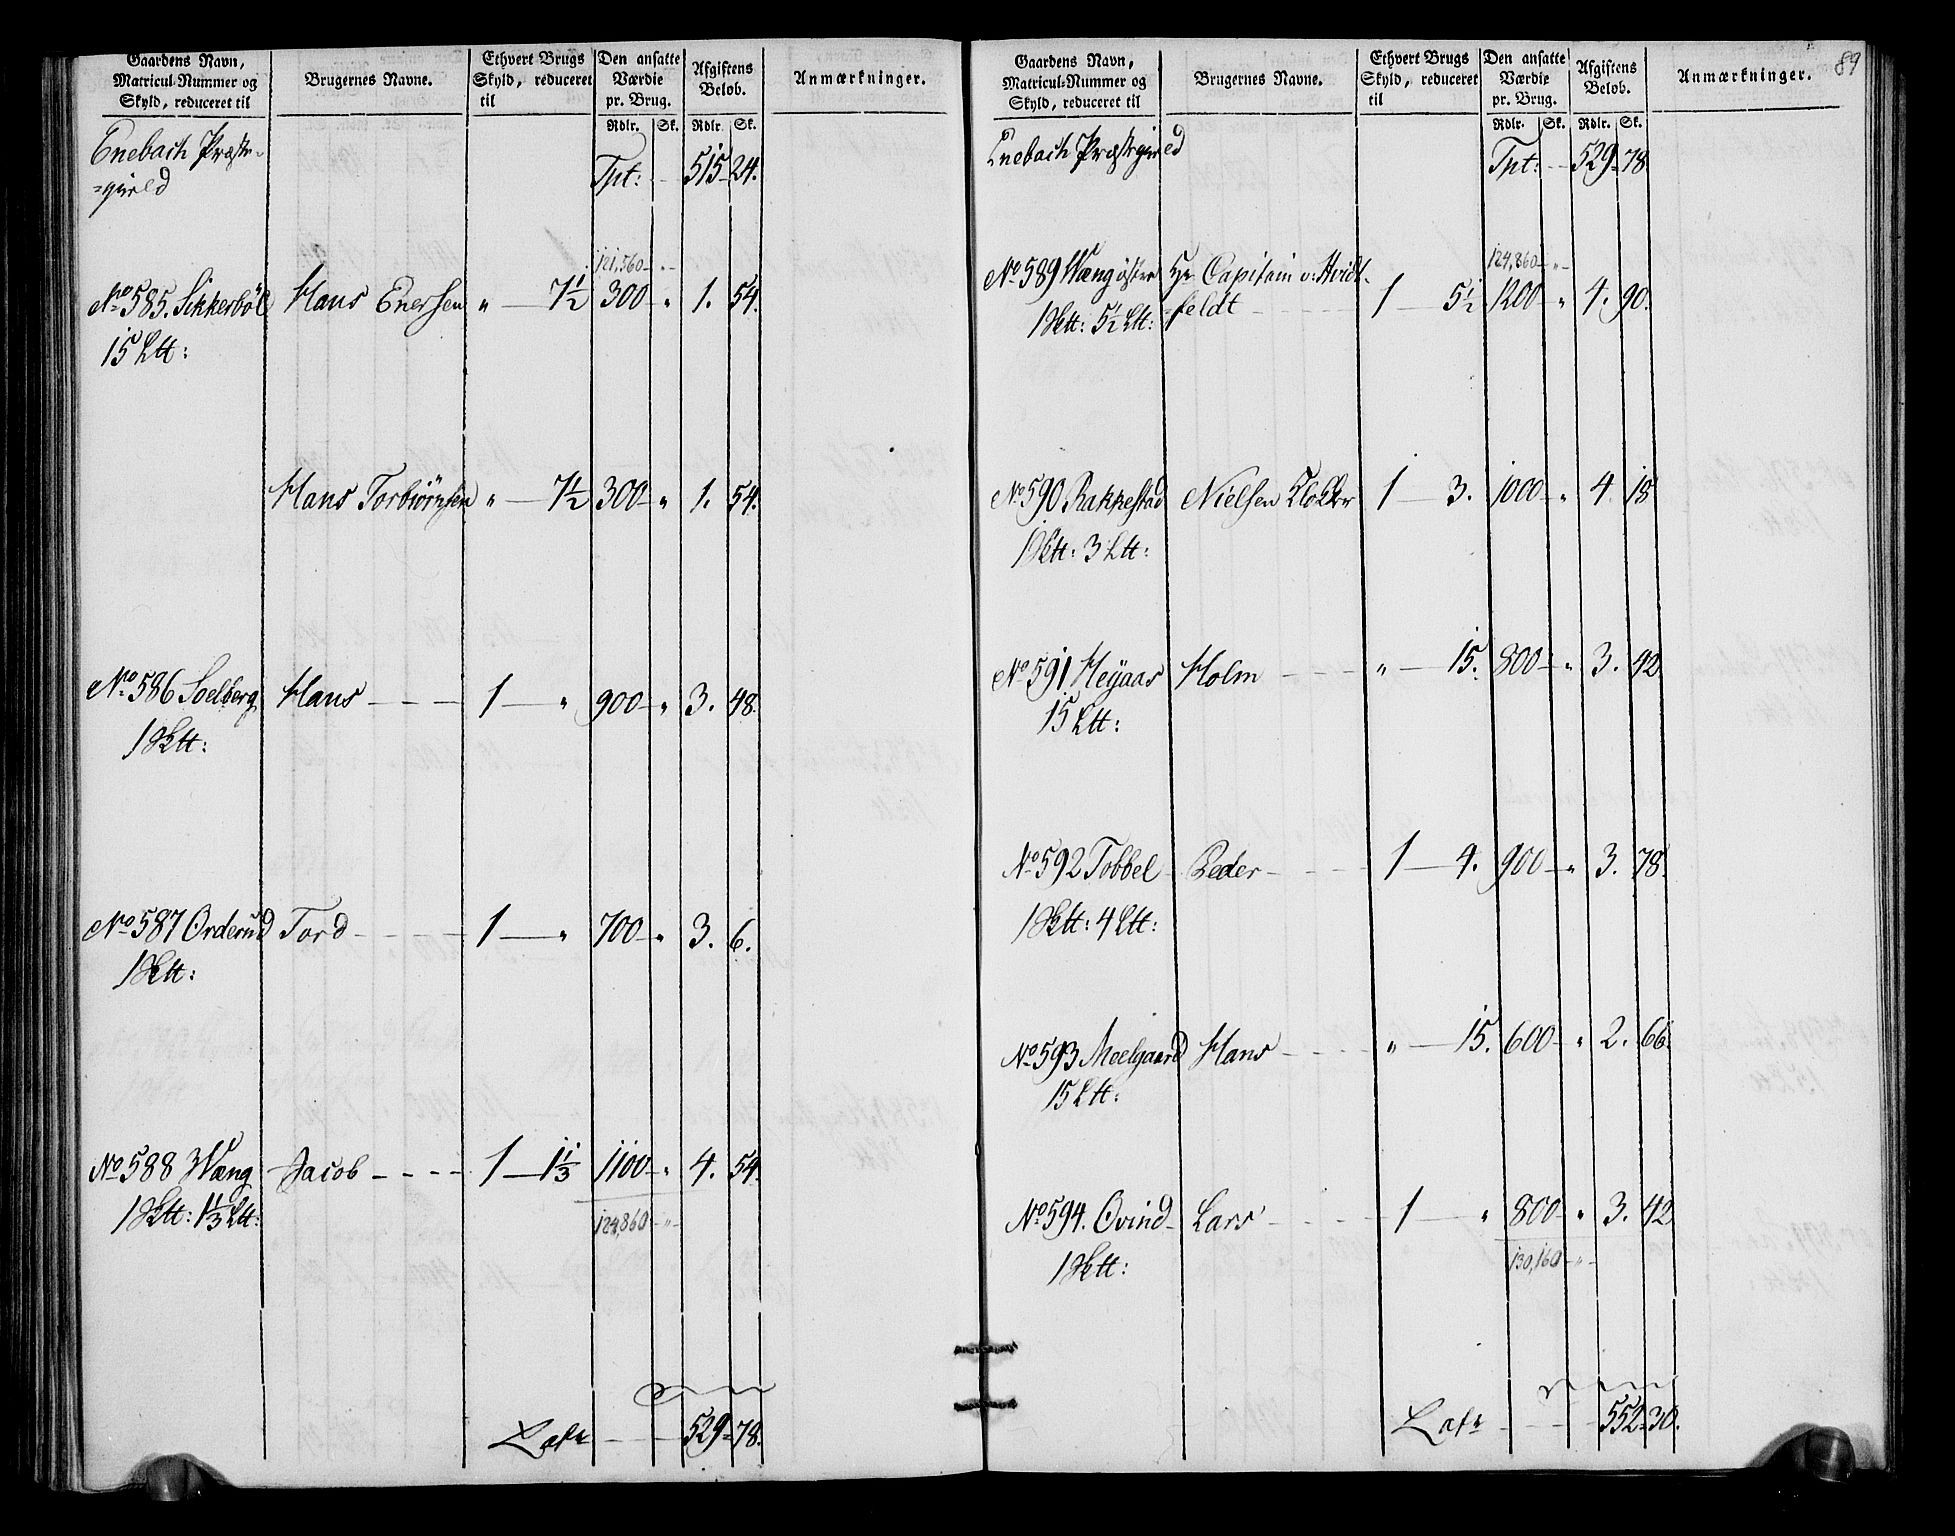 Gaardens Navn, Matricul-Nummer og Skyld, reduceret til | Brugernes Navne. | Ethvert Brugs Skyld, reduceret til | Den ansatte Værdie pr. Brug. Rdlr. Sk. | Afgiftens Beløb. Rdlr. Sk. | Anmærkninger.
Enebach Præste- Tpt: 515 24.
=gield
121,560 "
No 585. Sikkerböl Hans Enersen " 7½ 300 " 1. 54.
15 Ltt:
Hans Torbiørnsen " 7½ 300 " 1. 54.
No 586 Soelberg Hans 1 " 900 " 3. 48.
1 Sktt:
No 587 Orderud Tord 1 " 700 " 3. 6.
1 Sktt:
No 588 Wæng Jacob 1 1⅓ 1100 " 4. 54.
1 Sktt: 1⅓ Ltt:
124,860 "
Late 529 78.
89
Gaardens Navn, Matricul-Nummer og Skyld, reduceret til | Brugernes Navne. | Ethvert Brugs Skyld, reduceret til | Den ansatte Værdie pr. Brug. Rdlr. Sk. | Afgiftens Beløb. Rdlr. Sk. | Anmærkninger.
Enebach Præstegield Tpt: 529 78
124,860 "
No 589 Wæng öster Hr Capitain v: Hvidt-
1 Sktt: 5½ Ltt: =feldt 1 5½ 1200 " 4. 90.
No 590 Rakkestad Nielsen Klokker 1 3. 1000 " 4 18
1 Sktt: 3 Ltt:
No 591 Heyaas Holm " 15. 800 " 3. 42
15 Ltt:
No 592 Tobbel Peder 1 4. 900 " 3. 78.
1 Sktt: 4 Ltt:
No 593 Moelgaard Hans " 15. 600 " 2. 66.
15 Ltt:
No 594. Ovind Lars 1 " 800 " 3. 42
1 Sktt:
130,160 "
Late 552 30.